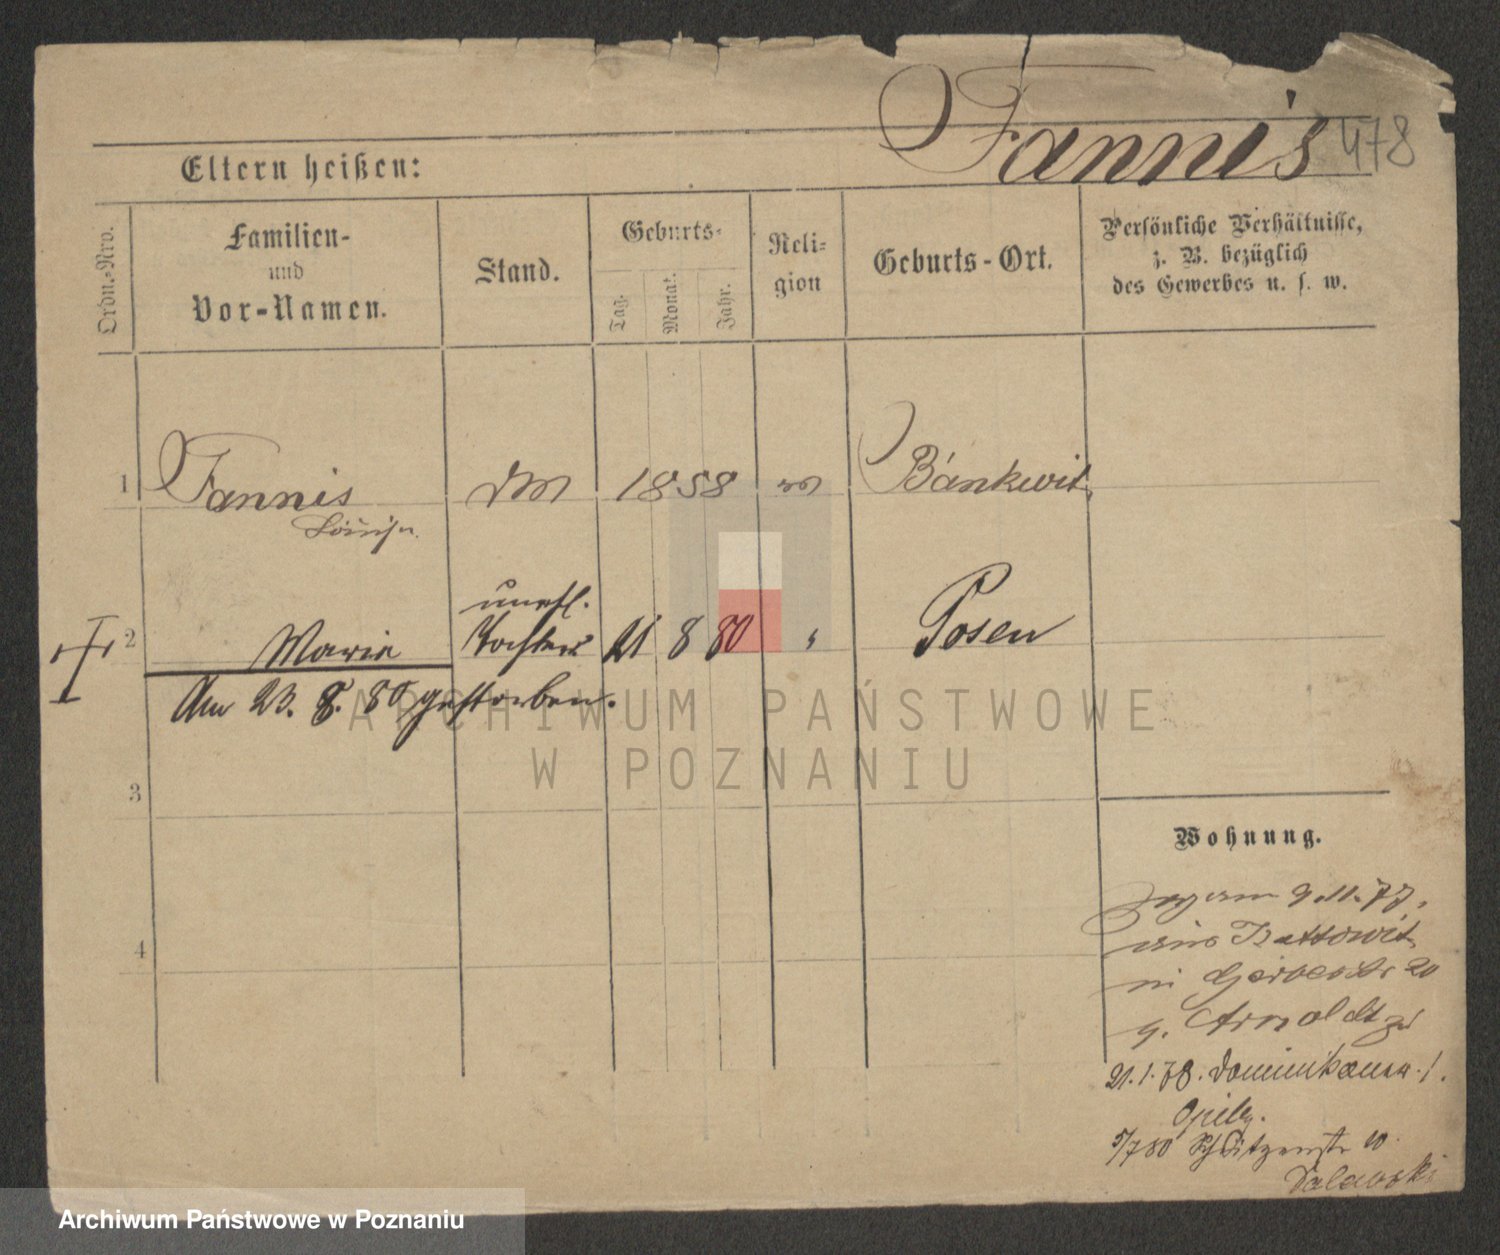 Fannis 478
Eltern heißen:
Ordn.-Nro.
Familien-
und
Vor-Namen.
Stand.
Geburts-
Tag.
Monat.
Jahr.
Reli-
gion
Geburts-Ort.
Persönliche Verhältnisse,
z. B. bezüglich
des Gewerbes u. s. w.
1 Fannis DM 1858 Bankwit
Louise
unehl.
2 Marie Tochter 21 8 80 " Posen
Am 23. 8. 80 gestorben.
3
4
Wohnung.
9.11.77.
aus Kattowit
in Gerberstr 20
Arnoldt
21.1.78. Dominikaner. 1.
Opitz.
5/7 80 Schützenstr 10
ARCHIWUM PAŃSTWOWE
W POZNANIU
Archiwum Państwowe w Poznaniu